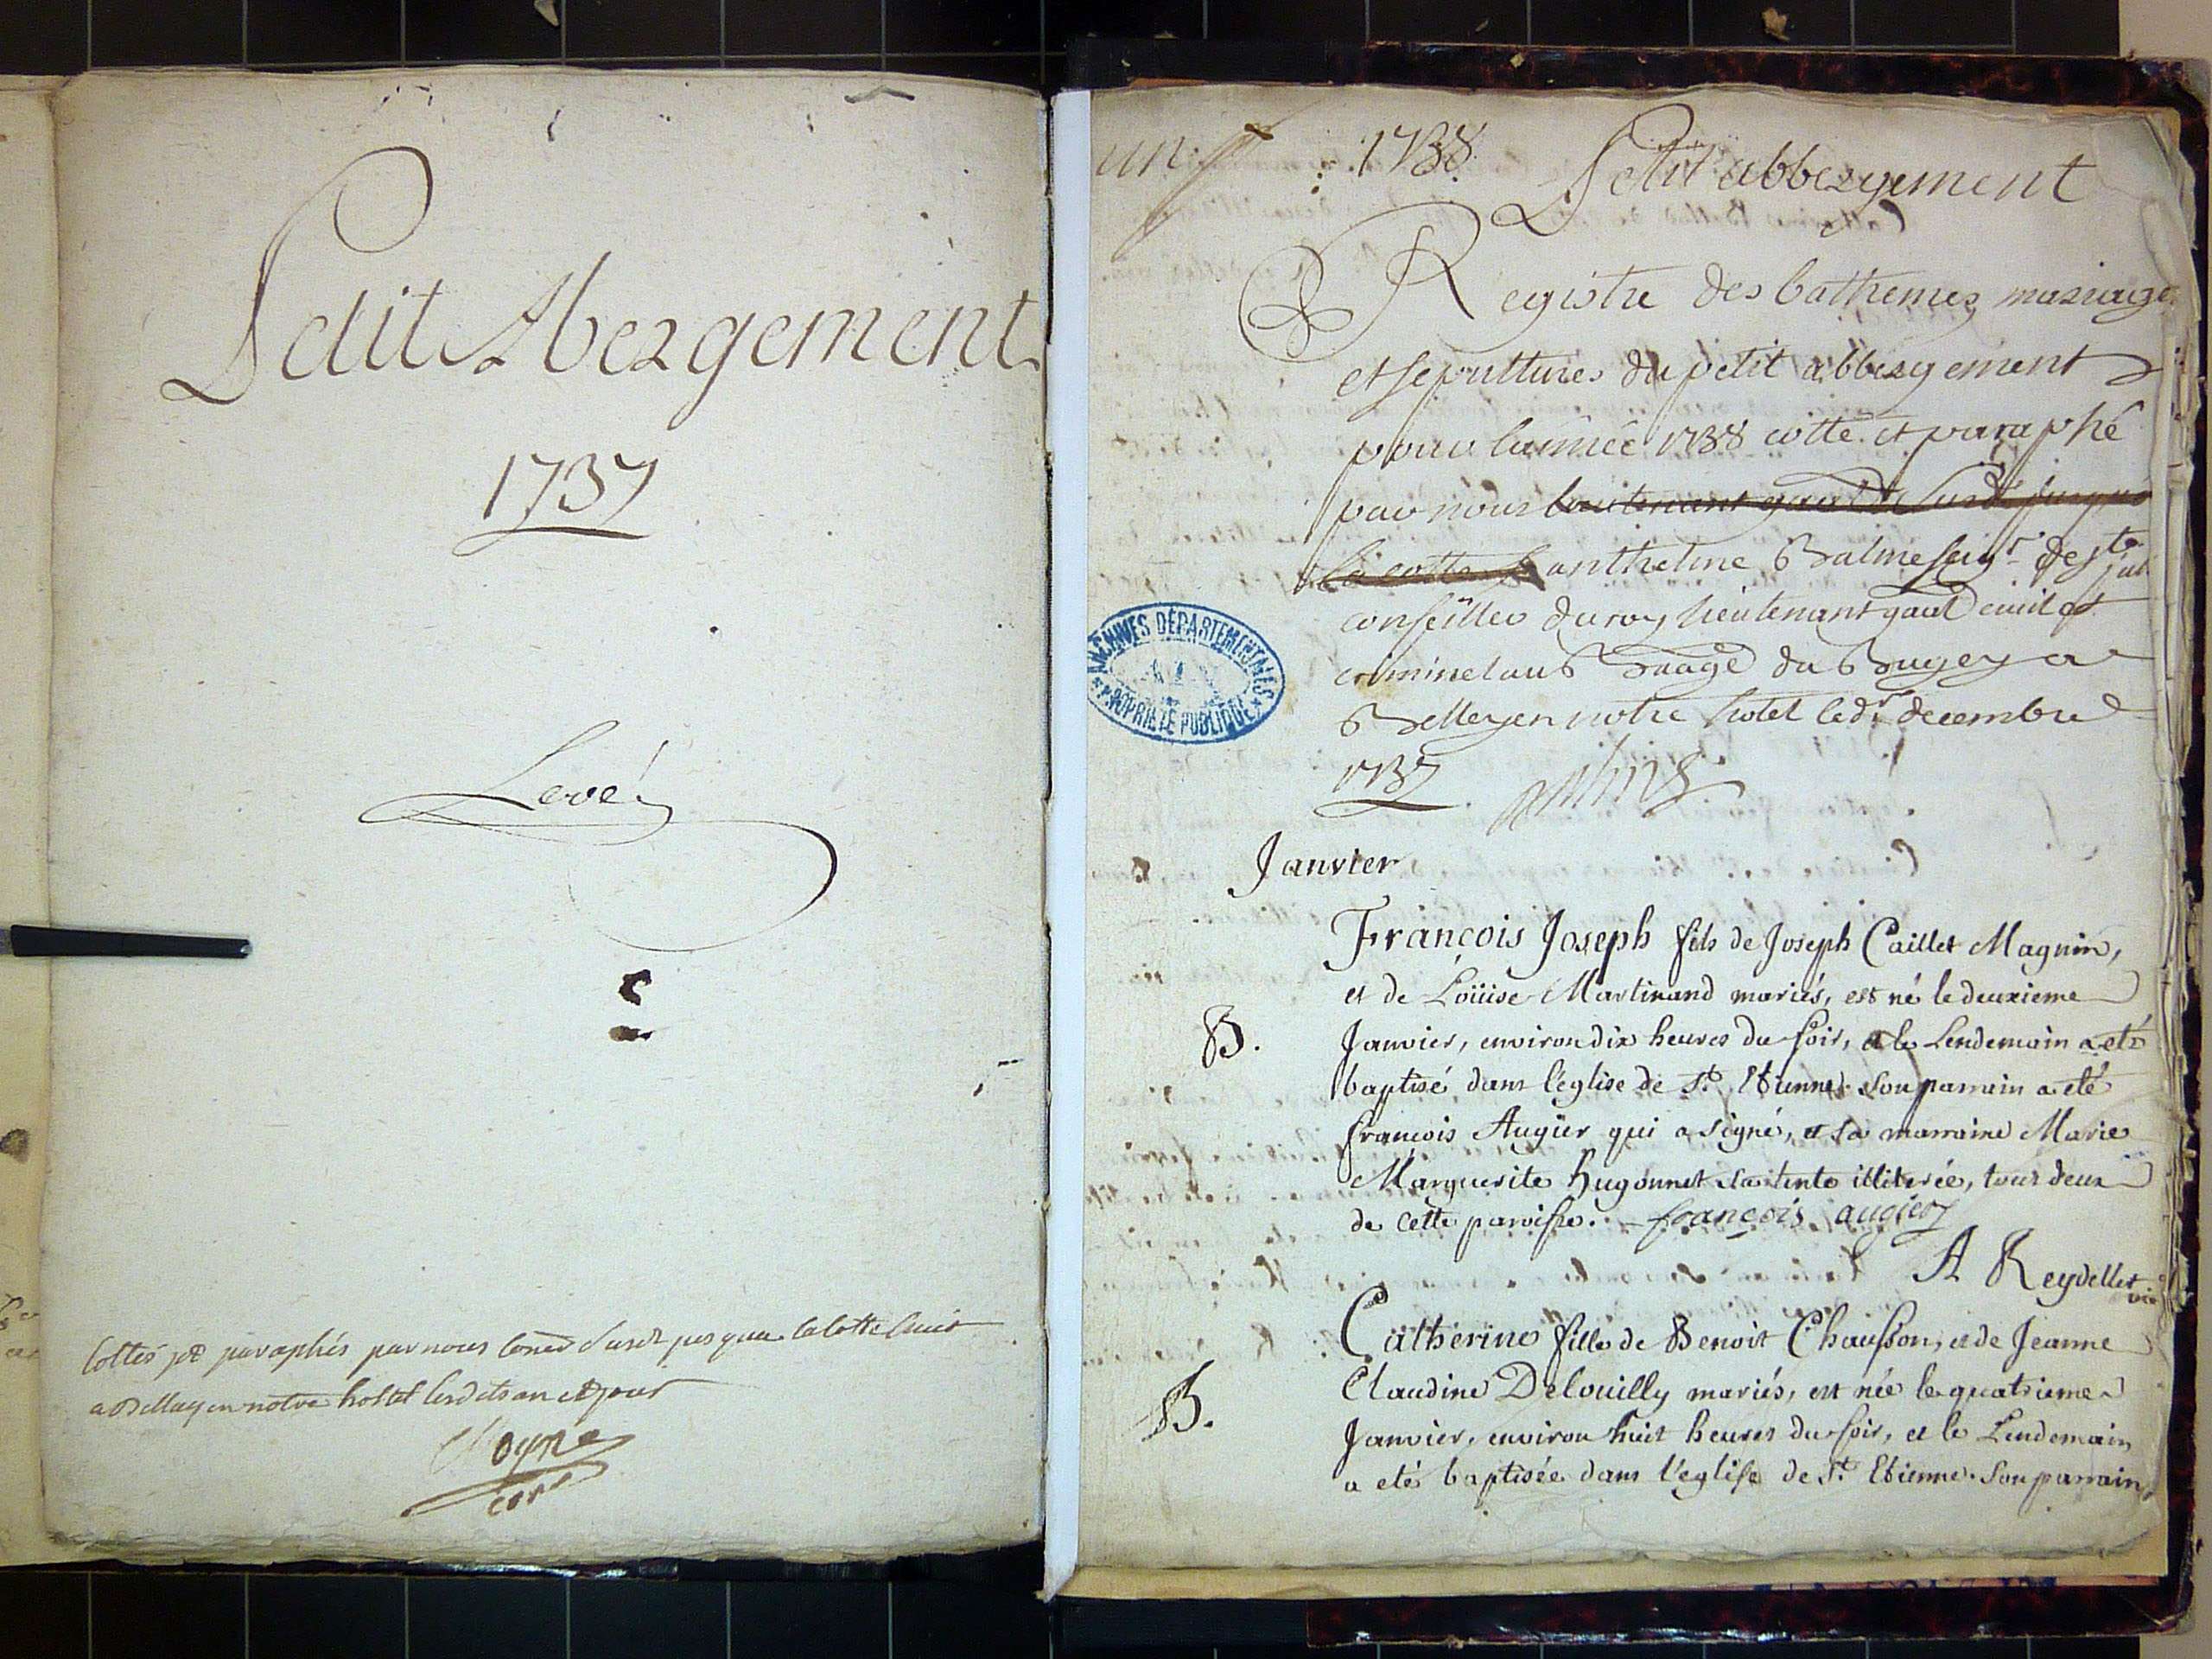 Petit Abergement
1737
Levé
Cottés et paraphés par nous consr susdt jusqu'a la cotte huit
a Belley en notre hostel lesdits an et jour
un
1738
Petit abbergement
Registre des bathemes mariages
et sepultures du petit abbergement
pour lannée 1738 cotté et paraphé
par nous lieutenant gnal susdt jusques
la cotte anthelme Balme seigr de ste
conseiller du roy lieutenant gnal civil et
criminel au Baage du Bugey a
Belley en notre hotel le dr decembre
1737
ARCHIVES DÉPARTEMENTALES
PROPRIÉTÉ PUBLIQUE
Janvier
François Joseph fils de Joseph Caillet Magnin,
et de Loüise Martinand mariés, est né le deuxieme
B.
Janvier, environ dix heures du soir, et le Lendemain a eté
baptisé dans l'église de St. Etienne. Son parrain a eté
françois Augier qui a signé, et sa marraine Marie
Marguerite Hugonnet sa tente illiterée, tous deux
de cette paroisse. françois augier
A Reydellet vic
Catherine fille de Benoit Chausson, et de Jeanne
B.
Claudine Delouilly mariés, est née le quatrieme
Janvier, environ huit heures du soir, et le Lendemain
a eté baptisée dans l'eglise de St. Etienne. Son parrain